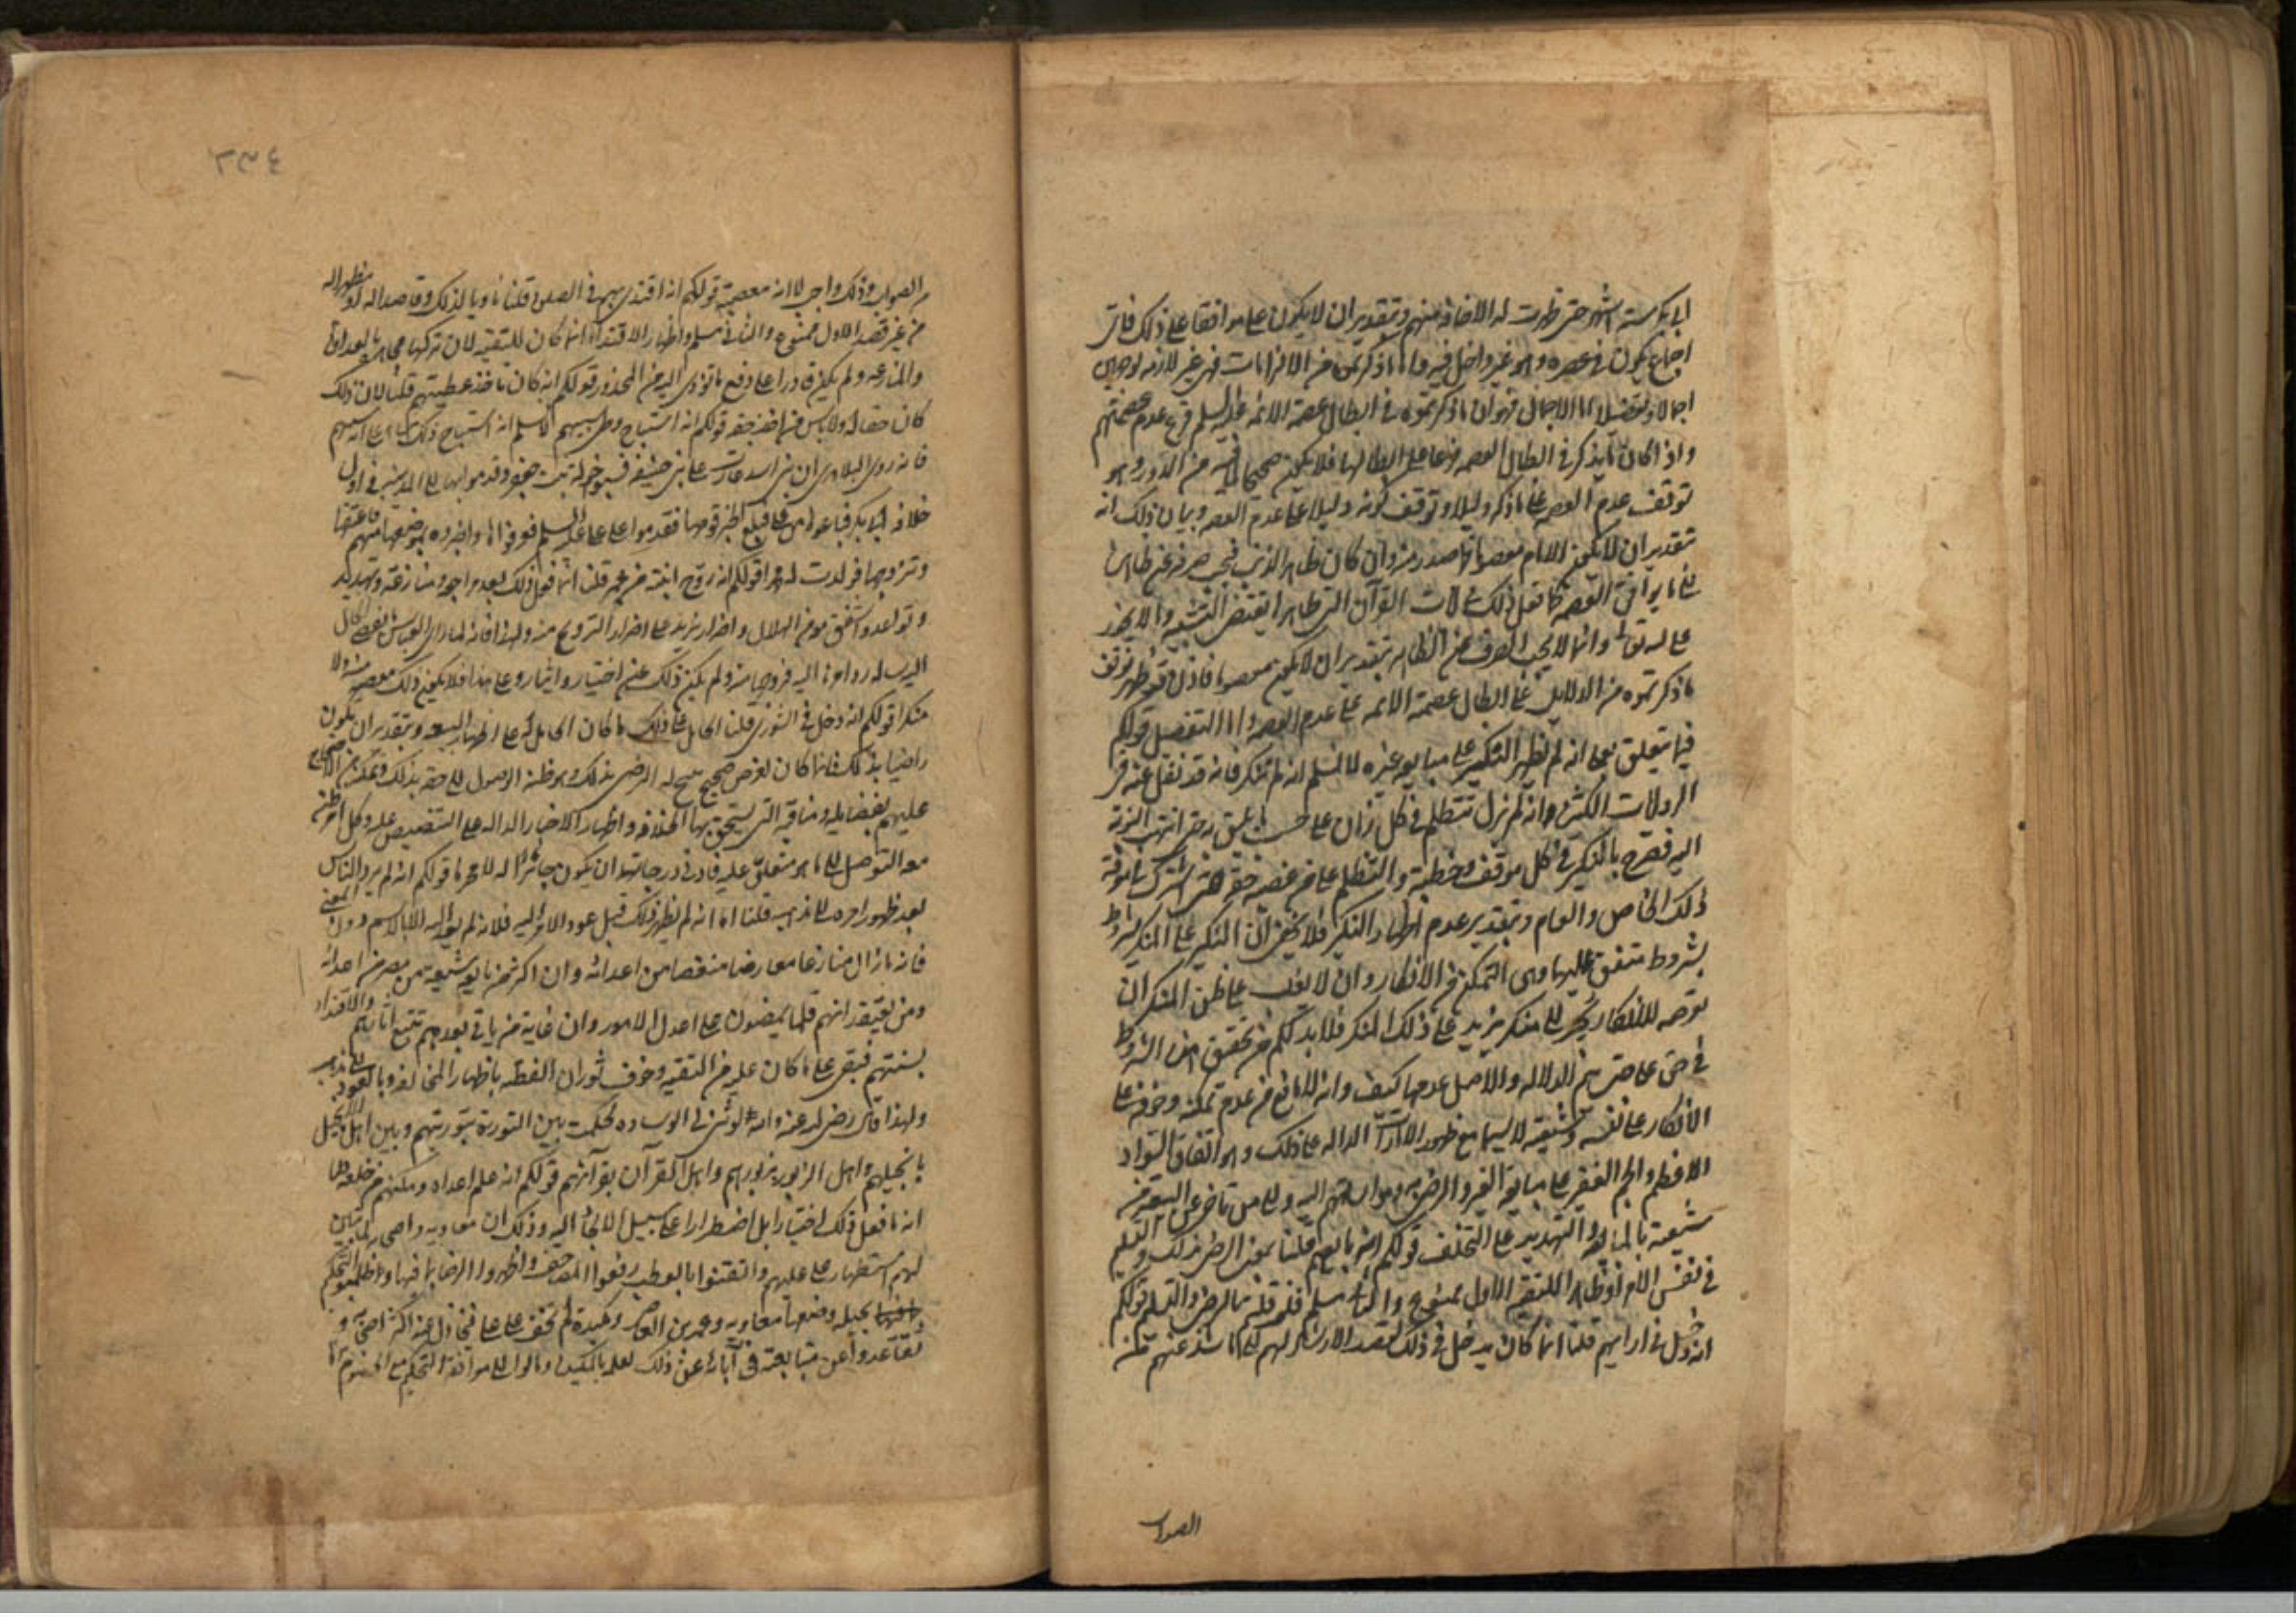 ابى بكر ستة اشهر حتى ظهرت له الاخافة منهم وبتقدير ان لا يكون على موافقا على ذلك فاى
اجماع يكون فى عصره وهو غير داخل فيه واما ما ذكرتموه من الالزامات فهى غير لازمة لوجهين
اجمالا وتفصيلا اما الاجمال فهو ان ما ذكرتموه فى ابطال عصمة الائمة عليهم السلم فرع عدم عصمتهم
واذا كان ما يذكر فى ابطال العصمه فرعا على ابطالها فلا يكون صحيحا لما فيه من الدور وهو
توقف عدم العصمه على ما ذكر دليلا وتوقف كونه دليلا على عدم العصمه وبيان ذلك انه
بتقدير ان لا يكون الامام معصوما فما صدر منه وان كان ظاهر الذنب فيجب صرفه عن ظاهره
الى ما يوافق العصمه كما نقل ذلك فى ايات القرآن التى ظاهرها يقتضى التشبيه وما لا يجوز
على الله تعالى وانما لا يجب الصرف عن الظاهر بتقدير ان لا يكون معصوما فاذن قد ظهر توقف
ما ذكرتموه من الدلايل على ابطال عصمة الائمه على عدم العصمه واما التفصيل قولكم
فيما يتعلق بعلى انه لم يظهر النكير على مبايعة غيره لا نسلم انه لم ينكر فانه قد نقل عنه فى
الروايات الكثيرة وانه لم يزل يتظلم فى كل زمان على حسب ما يليق به حتى انتهت النوبة
اليه فصرح بالنكير فى كل موقف وخطبة والتظلم على من غصبه حقه حتى اشترك فى معرفة
ذلك الخاص والعام وبتقدير عدم اظهار النكير فلا يخفى ان النكير على المنكر مشروط
بشروط متفق عليها وهى التمكن من الانكار وان لا يغلب على ظن المنكر ان
توجه للانكار يجر الى منكر يزيد على ذلك المنكر فلا بد لكم من تحقيق هذه الشروط
فى حق على حتى يتم الدلاله والاصل عدمها كيف وانه لا مانع من عدم تمكنه وخوفه على
الانكار على نفسه وشيعته لا سيما مع ظهور الامارات الداله على ذلك وهو اتفاق السواد
الاعظم والجم الغفير على مبايعة الغير والرضى به وميلهم اليه ولكل من تاخر عن البيعة من
شيعته بالمنابذة والتهديد على التخلف قولكم انه بايعهم قلنا بمعنى الرضى بذلك والتسليم
فى نفس الامر او ظاهرا للتقية الاول ممنوع والثانى مسلم فلم قلتم بالرضى والتسليم قولكم
انه دخل فى ارايهم قلنا انما كان يدخل فى ذلك لقصد الارشاد لهم الى ما شذ عنهم من
الصواب
٢٣٤
من الصواب وذلك واجب لا انه معصية قولكم انه اقتدى بهم فى الصلوة قلنا ناويا لذلك وقاصدا له او مظهرا له
من غير قصد الاول ممنوع والثانى مسلم واظهار الاقتداء انما كان للتقية لان تركها مجاهرة بالعداوة
والمنازعه ولم يكن قادرا على دفع ما تؤدى اليه من المحذور قولكم انه كان ياخذ عطيتهم قلنا لان ذلك
كان حقا له ولا باس فى اخذ حقه قولكم انه استباح وطى سبيهم لا نسلم انه استباح ذلك بناء على انه سبيهم
فانه روى البلاذرى ان بنى اسد غارت على بنى حنيفة فسبوا خولة بنت جعفر وقدموا بها الى المدينة فى اول
خلافة ابى بكر فباعوها من على فبلغ الخبر قومها فقدموا على على عليه السلم فعرفوها واخبروه بموضعها منهم فاعتقها
وتزوجها فولدت له محمدا قولكم انه زوج ابنته من عمر قلنا انما فعل ذلك بعد مراجعة ومنازعة وتهديد
وتواعد واشفق معه من الهلال واضرار يزيد على اضرار التزويج منه ولهذا فانه لما راى العباس تفصى الحال
اليه سأله رد امرها اليه فزوجها منه ولم يكن ذلك عن اختيار وايثار وعلى هذا فلا يكون ذلك معصية منه ولا
منكرا قولكم انه دخل فى الشورى قلنا الحامل على ذلك ما كان الحامل له على اظهار البيعه وبتقدير ان يكون
راضيا بذلك فانما كان لغرض صحيح سح له الرضى بذلك وهو ظنه الوصول الى حقه بذلك وتمكنه من الاحتجاج
عليهم بفضايله ومناقبه التى يستحق بها الخلافه واظهار الاخبار الداله على التنصيص عليه وكل امر ظن
معه التوصل الى ما هو متعلق عليه فادنى درجاته ان يكون جائزا له لا محرما قولكم انه لم يرد الناس
بعد ظهور امره الى مذهبه قلنا اما انه لم يظهر ذلك قبل عود الامر اليه فلانه لم يعد اليه الا بالاسم دون المعنى
فانه ما زال منازعا معارضا منغصا من اعدائه وان اكثر من بايعه شيعة من مضى من اعدائه
ومن يعتقد انهم قلما يمضون على اعدل الامور وان غاية من ياتى بعدهم تتبع اثارهم والاقتداء
بسنتهم فبقى على ما كان عليه من التقية وخوف ثوران الفتنه باظهار المخالفه وبالعود الى مذهبه
ولهذا قال رضى الله عنه والله لو ثنى لى الوساده لحكمت بين التورية بتوريتهم وبين اهل الانجيل
بانجيلهم واهل الزبور بزبورهم واهل القرآن بقرآنهم قولكم انه علم اعداه ومكنهم من خلعه قلنا
انه ما فعل ذلك اختيارا بل اضطرارا على سبيل الالجاء اليه وذلك ان معاويه واصحابه لما تبين
لهم استظهار على عليهم وايقنوا بالعطب رفعوا المصاحف واظهروا الرضا بما فيها وطلبوا التحكيم
بحيلة وضعها معاويه وعمرو بن العاص ومكيدة لم تخف على على فتخاذل عنه اكثر اصحابه و
تقاعدوا عن متابعته فى آبائه عن ذلك لعلمه بالمكيدة ومالوا الى موافقة التحكيم مع الخصوم